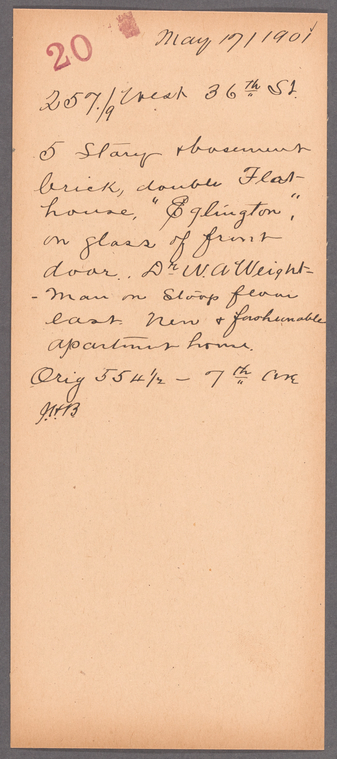 20
May 17/1901
257./9 West 36th St.
5 Story & basement
brick, double Flat
house, "Eglington",
on glass of front
door. Dr W. A Weight-
-man on Stoop floor
east. New & fashionable
apartment house.
Orig 554½ — 7th Ave